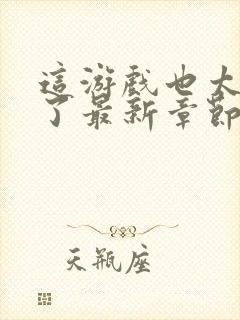 這游戲也太
了最新章節
天瓶座